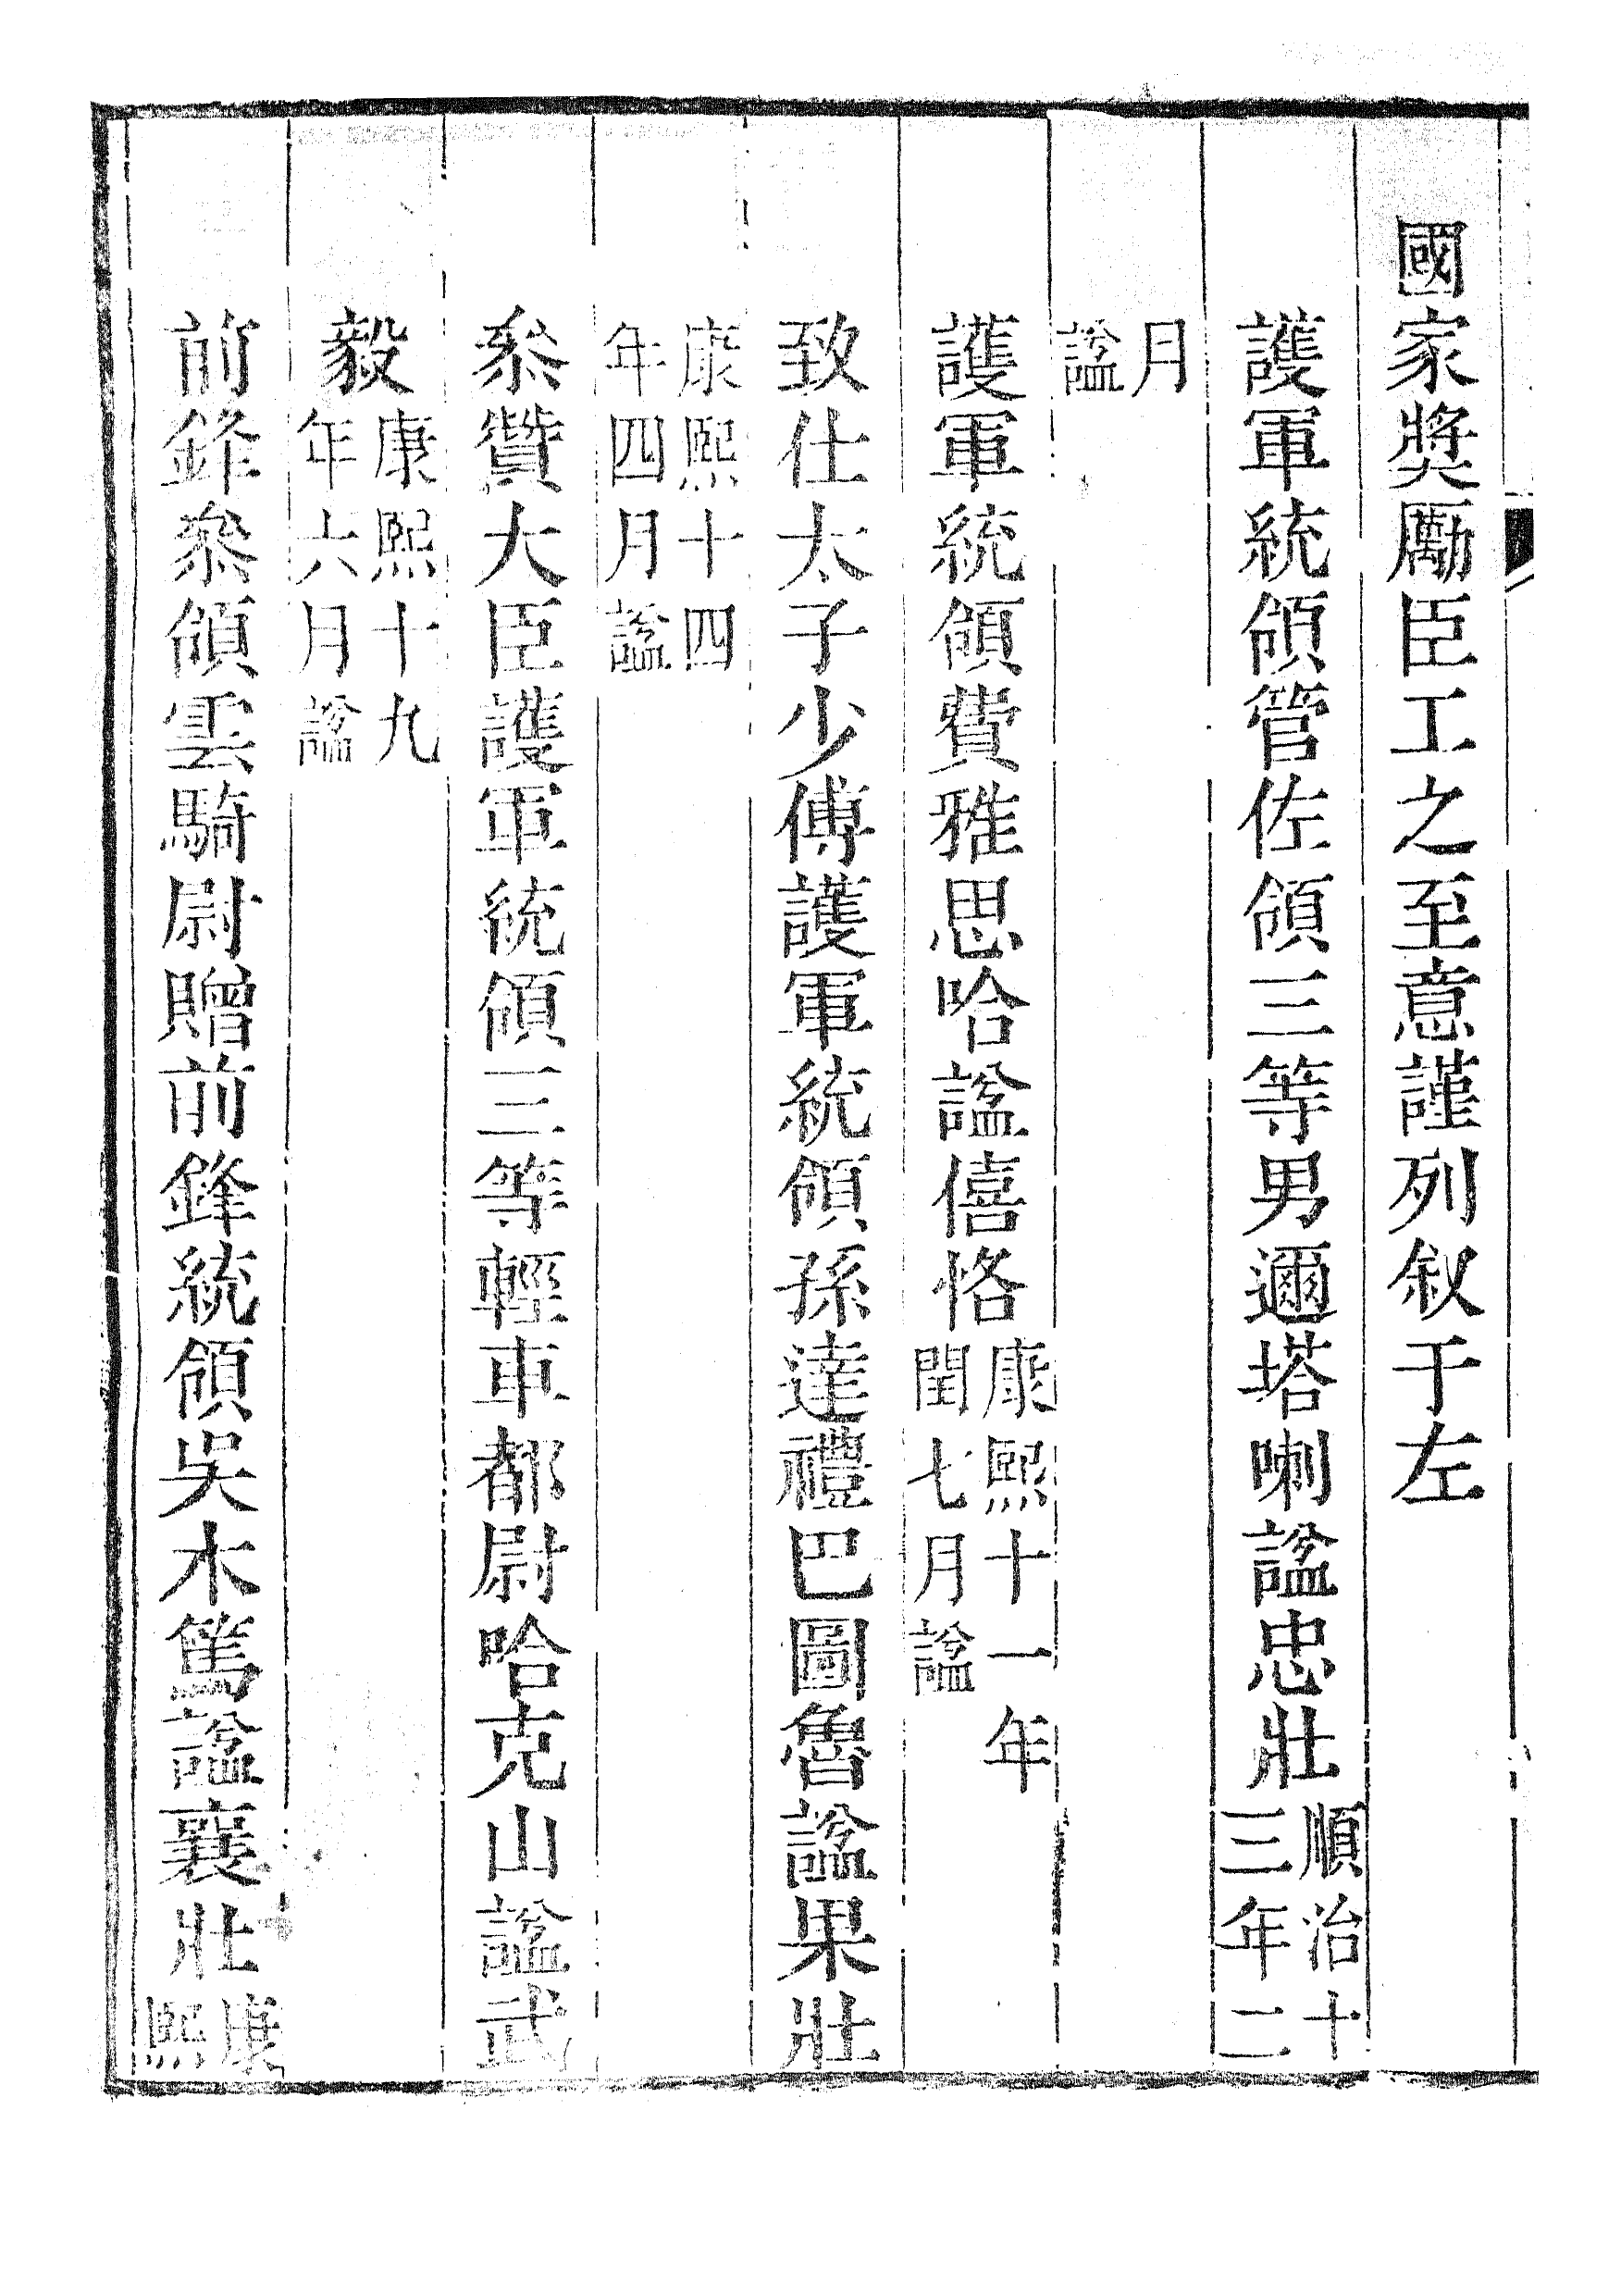 國家獎勵臣工之至意謹列敘于左
護軍統領管佐領三等男邇塔喇諡忠壯順治十三年二
月諡
護軍統領費雅思哈諡僖恪康熙十一年閏七月諡
致仕太子少傅護軍統領孫達禮巴圖魯諡果壯
康熙十四年四月諡
叅贊大臣護軍統領三等輕車都尉哈克山諡武
毅康熙十九年六月諡
前鋒叅領雲騎尉贈前鋒統領吳木篤諡襄壯康熙